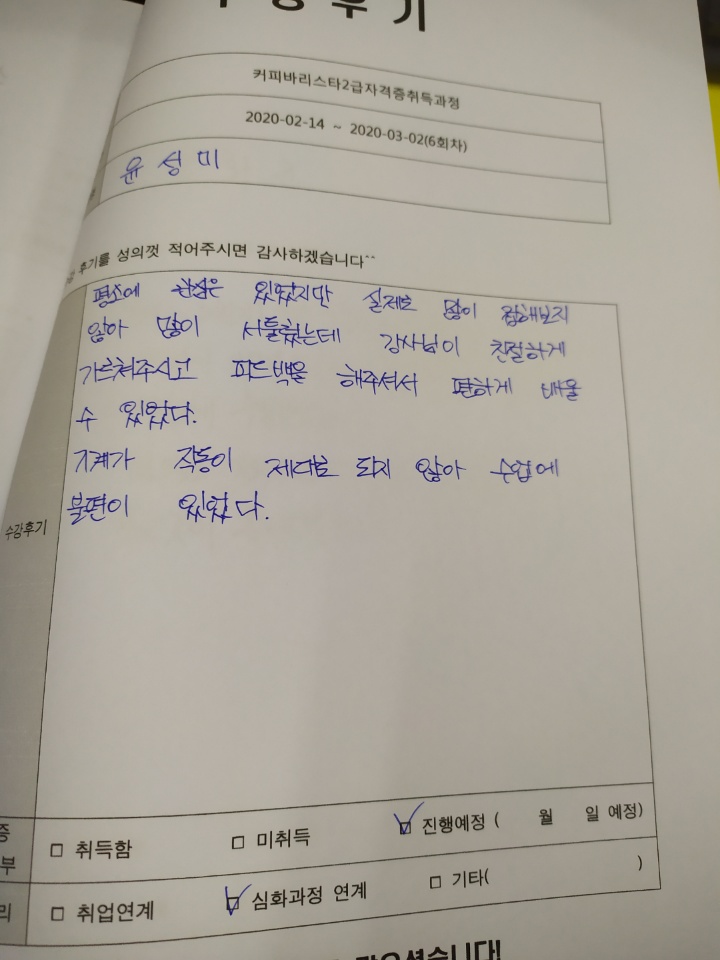 수강후기
커피바리스타2급자격증취득과정
2020-02-14 ~ 2020-03-02(6회차)
윤성미
후기를 성의껏 적어주시면 감사하겠습니다^^
평소에 관심은 있었지만 실제로 많이 접해보지
않아 많이 서툴렀는데 강사님이 친절하게
가르쳐주시고 피드백을 해주셔서 편하게 배울
수 있었다.
기계가 작동이 제대로 되지 않아 수업에
불편이 있었다.
수강후기
증
부
□ 취득함 □ 미취득 ☑ 진행예정 ( 월 일 예정)
리
□ 취업연계 ☑ 심화과정 연계 □ 기타( )